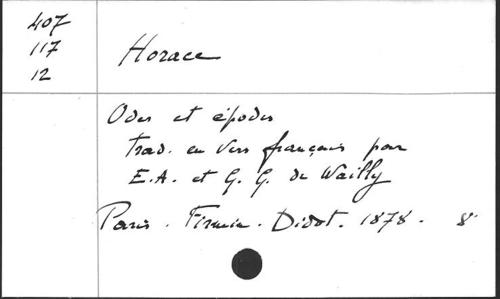 407
117
12
Horace
Odes et épodes
trad. en vers français par
E.A. et G. G. de Wailly
Paris. Firmin. Didot. 1878. 8°